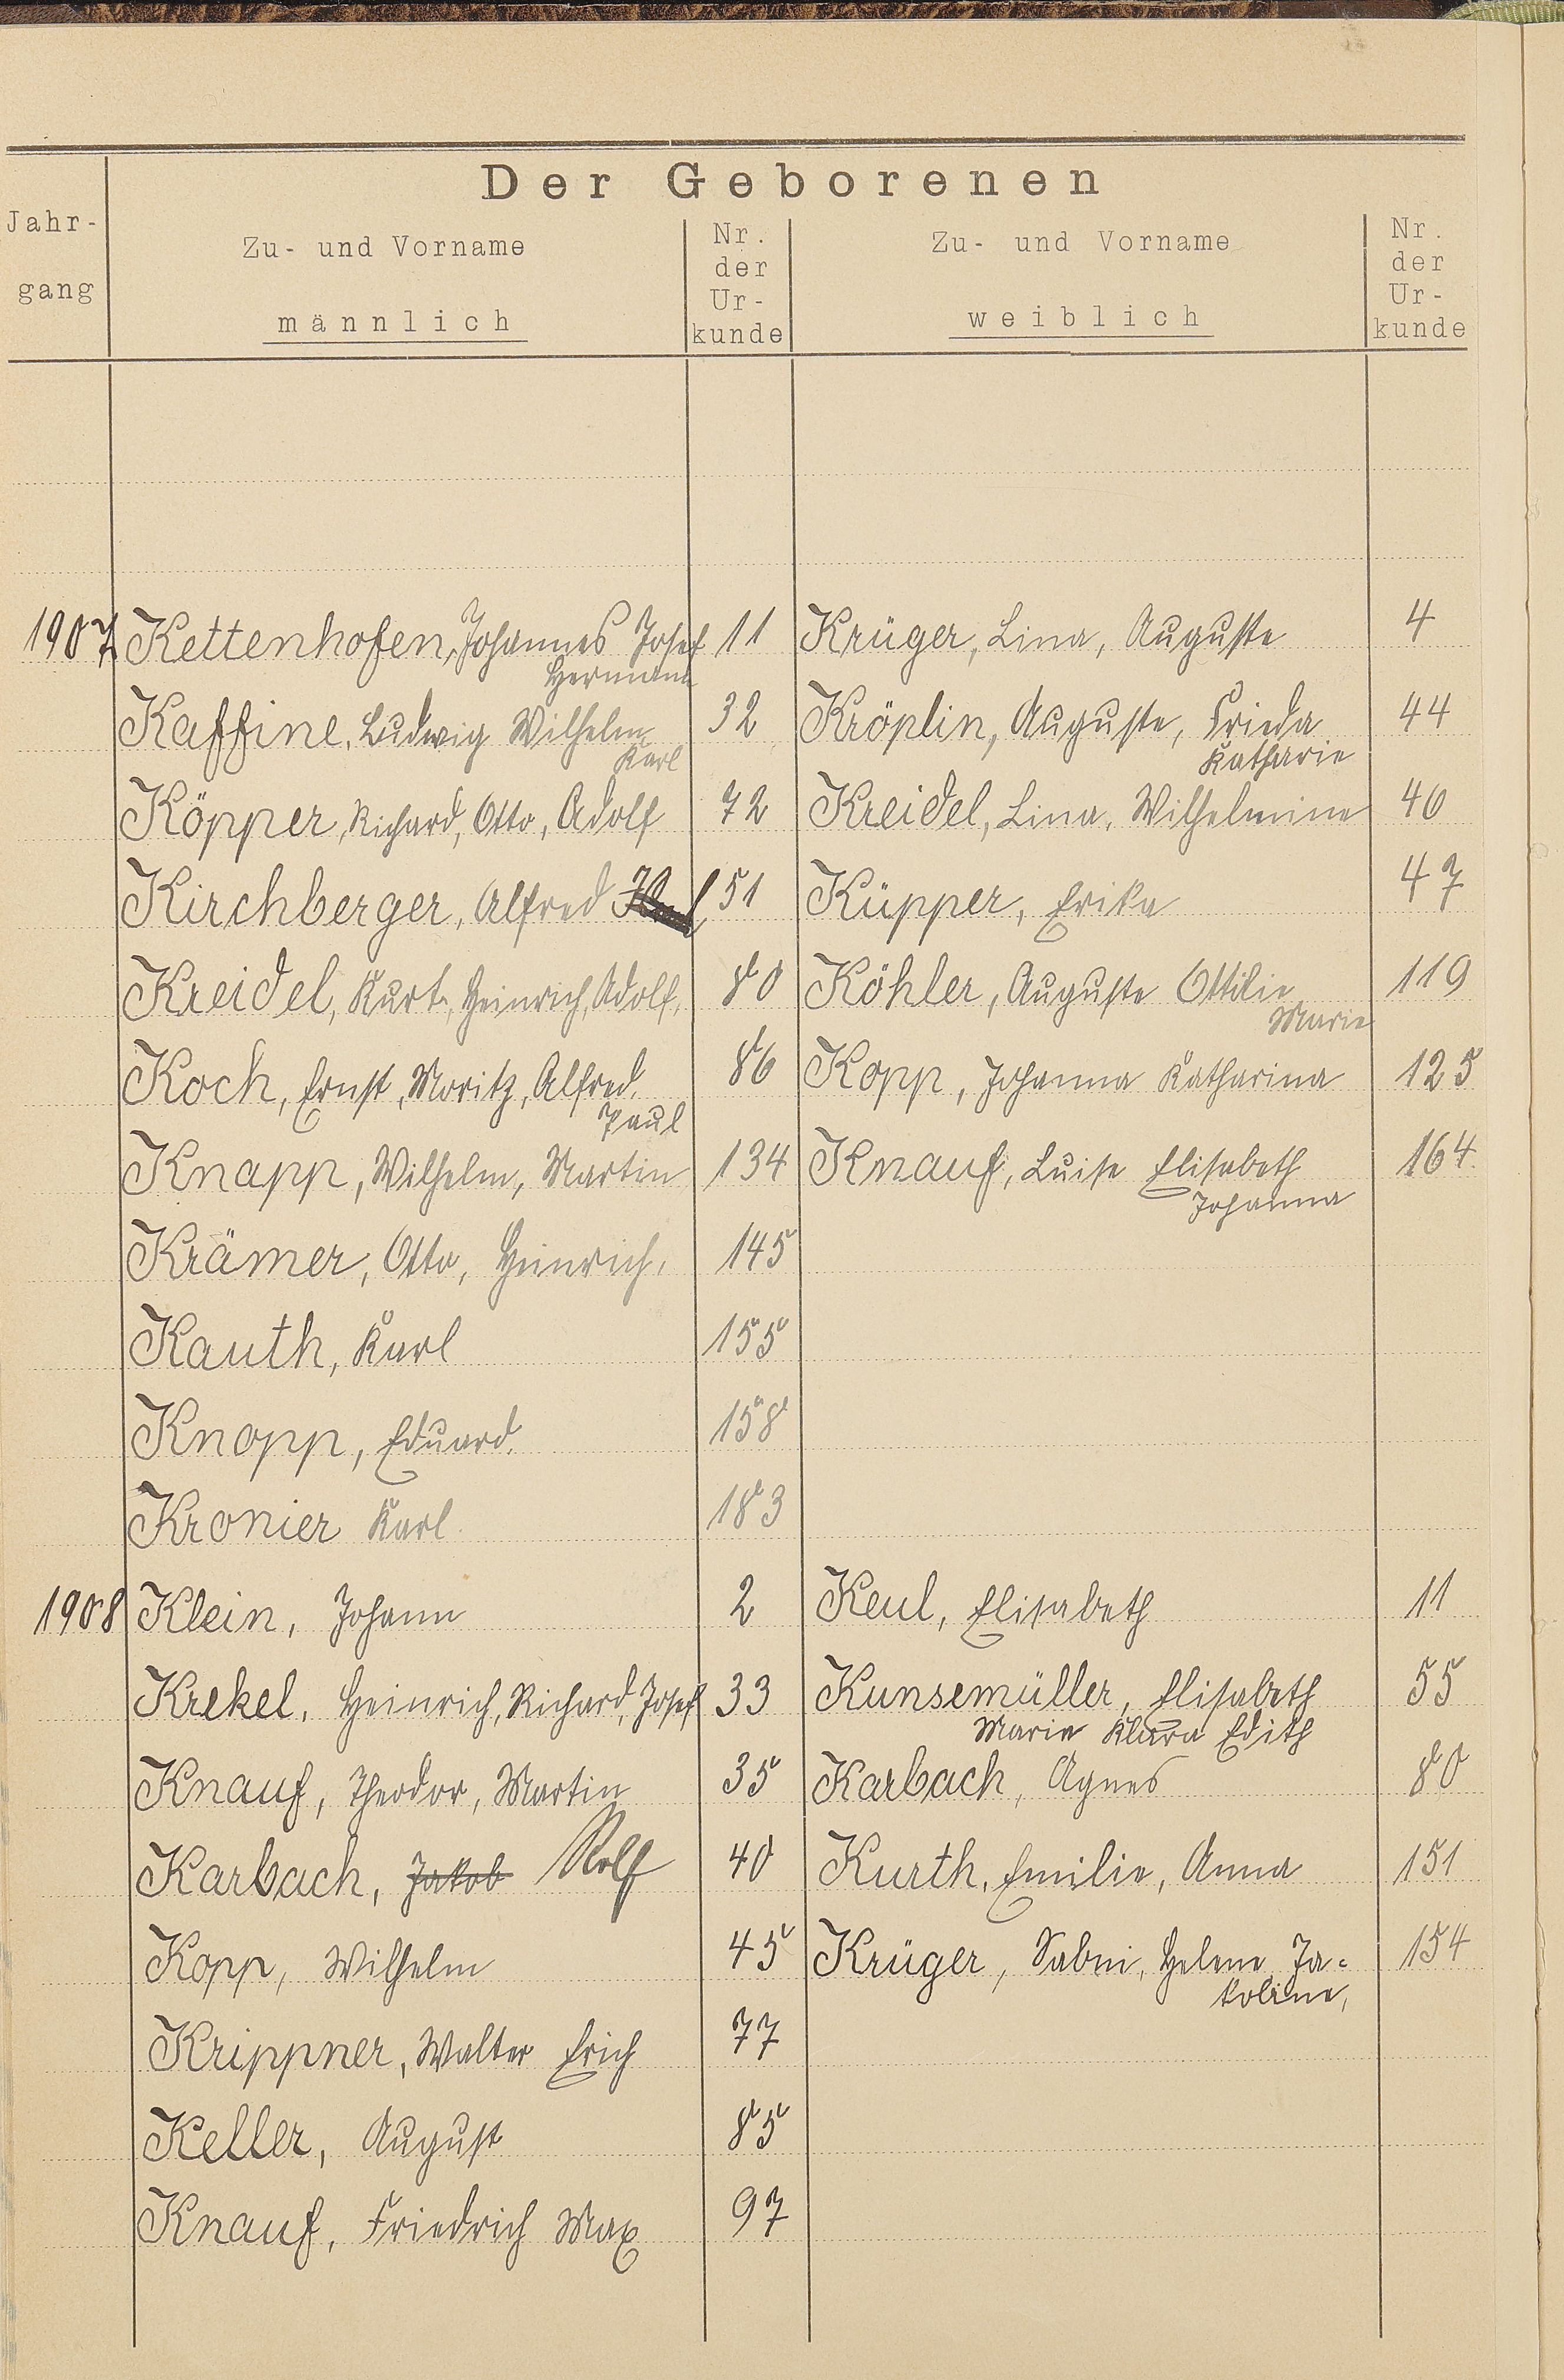 Der Geborenen
Jahr-
gang
Zu- und Vorname
männlich
Nr.
der
Ur-
kunde
Zu- und Vorname
weiblich
Nr.
der
Ur-
kunde
1907 Kettenhofen, Johannes Josef 11 Krüger, Lina, Auguste 4
Hermann
Kaffine, Ludwig Wilhelm 32 Kröplin, Auguste, Frieda 44
Karl Katharie
Köpper, Richard, Otto, Adolf 72 Kreidel, Lina, Wilhelmine 40
Kirchberger, Alfred 51 Küpper, Erika 47
Kreidel, Kurt, Heinrich, Adolf, 80 Köhler, Auguste Ottilie 119
Marie
Koch, Ernst, Moritz, Alfred, 86 Kopp, Johanna Katharina 125
Paul
Knapp, Wilhelm, Martin 134 Knauf, Luise Elisabeth 164
Johanna
Krämer, Otto, Heinrich, 145
Kauth, Karl 155
Knopp, Eduard. 158
Kronier Karl 183
1908 Klein, Johann 2 Keul, Elisabeth 11
Krekel, Heinrich, Richard, Josef 33 Kunsemüller, Elisabeth 55
Marie Klara Edith
Knauf, Theodor, Martin 35 Karbach, Agnes 80
Karbach, Jakob Rolf 40 Kurth, Emilie, Anna 151
Kopp, Wilhelm 45 Krüger, Helene Ja= 154
kobine,
Krippner, Walter Erich 77
Keller, August 85
Knauf, Friedrich Max 97